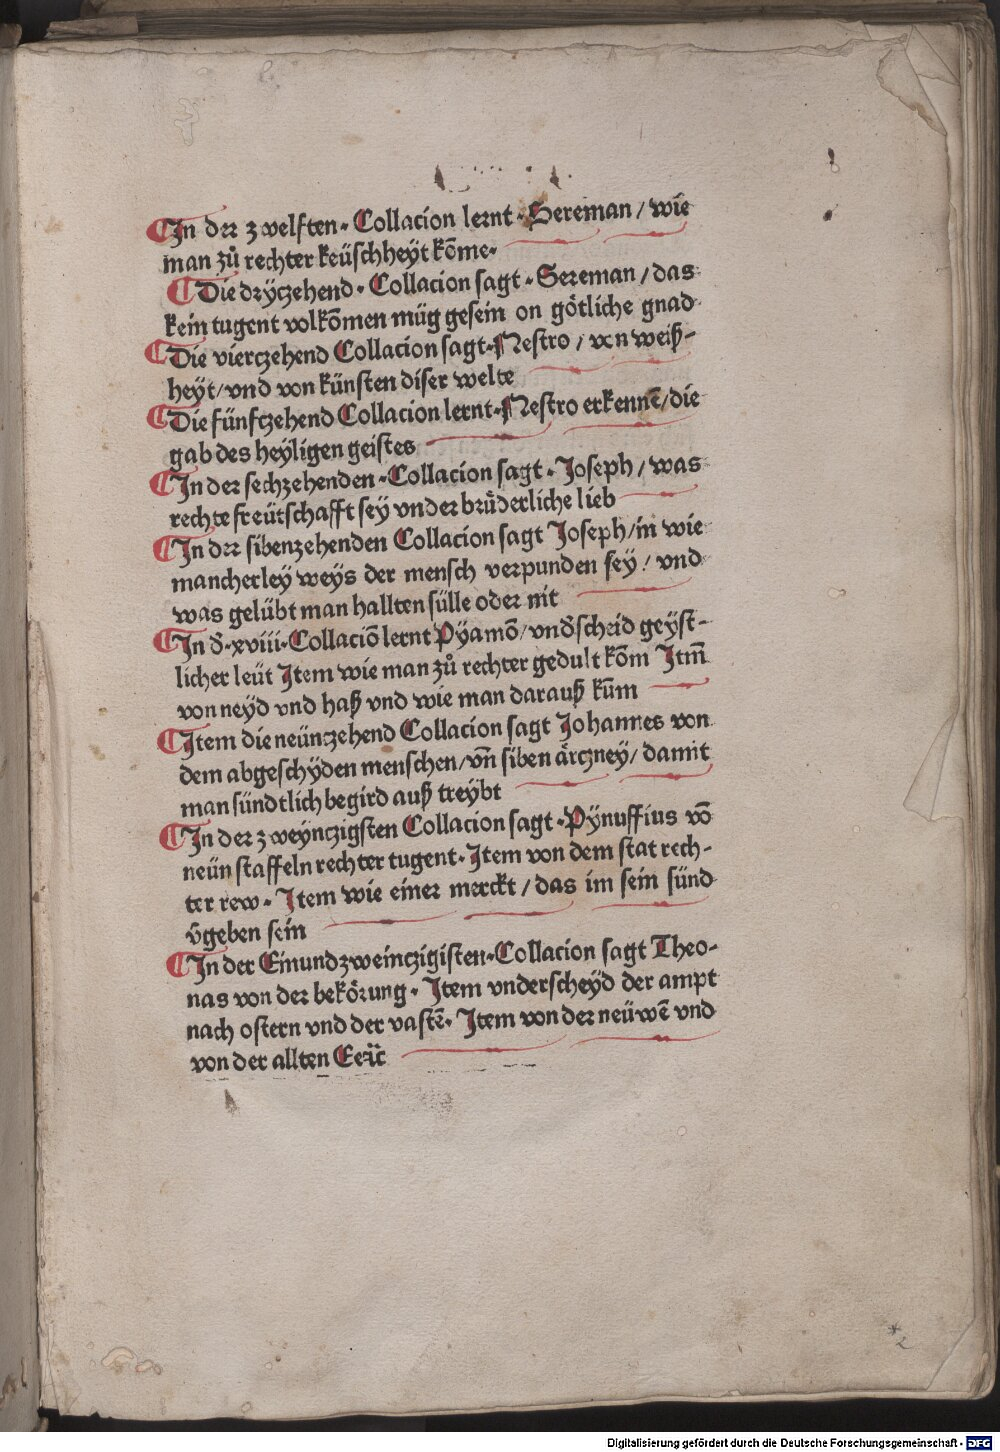 In drr zwelften · Collacion lernt · Sereman / wie
man zuͦ rechter keüschheyt kōme·
Die dryczehend · Collacion sagt · Sereman / das
kein tugent volkōmen müg gesein on goͤtliche gnad
Die vierczehend Collacion sagt · Nestro / von weiß-
heyt / vnd von künsten diser welte
Die fünfczehend Collacion lernt · Nestro erkennē / die
gab des heyligen geistes
In der sechzehenden · Collacion sagt · Joseph / was
rechte freütschafft sey vnder bruͤderliche lieb
In drr sibenzehenden Collacion sagt Joseph / in wie
mancherley weys der mensch verpunden sey / vnd
was gelübt man hallten sülle oder nit
In d̄ · xviii · Collaciō lernt Pyamō / vnd̄scheid geyst-
licher leüt Item wie man zuͦ rechter gedult kōm Itm̄
von neyd vnd haß vnd wie man darauß kum̄
Item die neünczehend Collacion sagt Johannes von
dem abgeschyden menschen / vn̄ siben aͤrczney / damit
man sündtlich begird auß treybt
In der zweynczigsten Collacion sagt · Pynuffius vō
neün staffeln rechter tugent · Item von dem stat rech-
ter rew · Item wie einer merckt / das im sein sünd
v̄geben sein
In der Einundzweinczigisten · Collacion sagt Theo-
nas von der bekoͤrung · Item vnderscheyd der ampt
nach ostern vnd der vastē · Item von der neüwē vnd
von der allten Ee
2
Digitalisierung gefördert durch die Deutsche Forschungsgemeinschaft - DFG